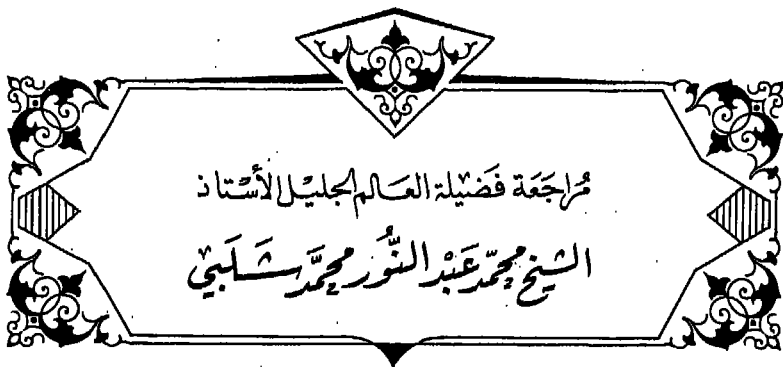 مُرَاجَعَة فَضِيلَة العَالِم الجَلِيل الأُسْتَاذ
الشيخ محمّد عَبْد النُّور محمَّد شَلَبي